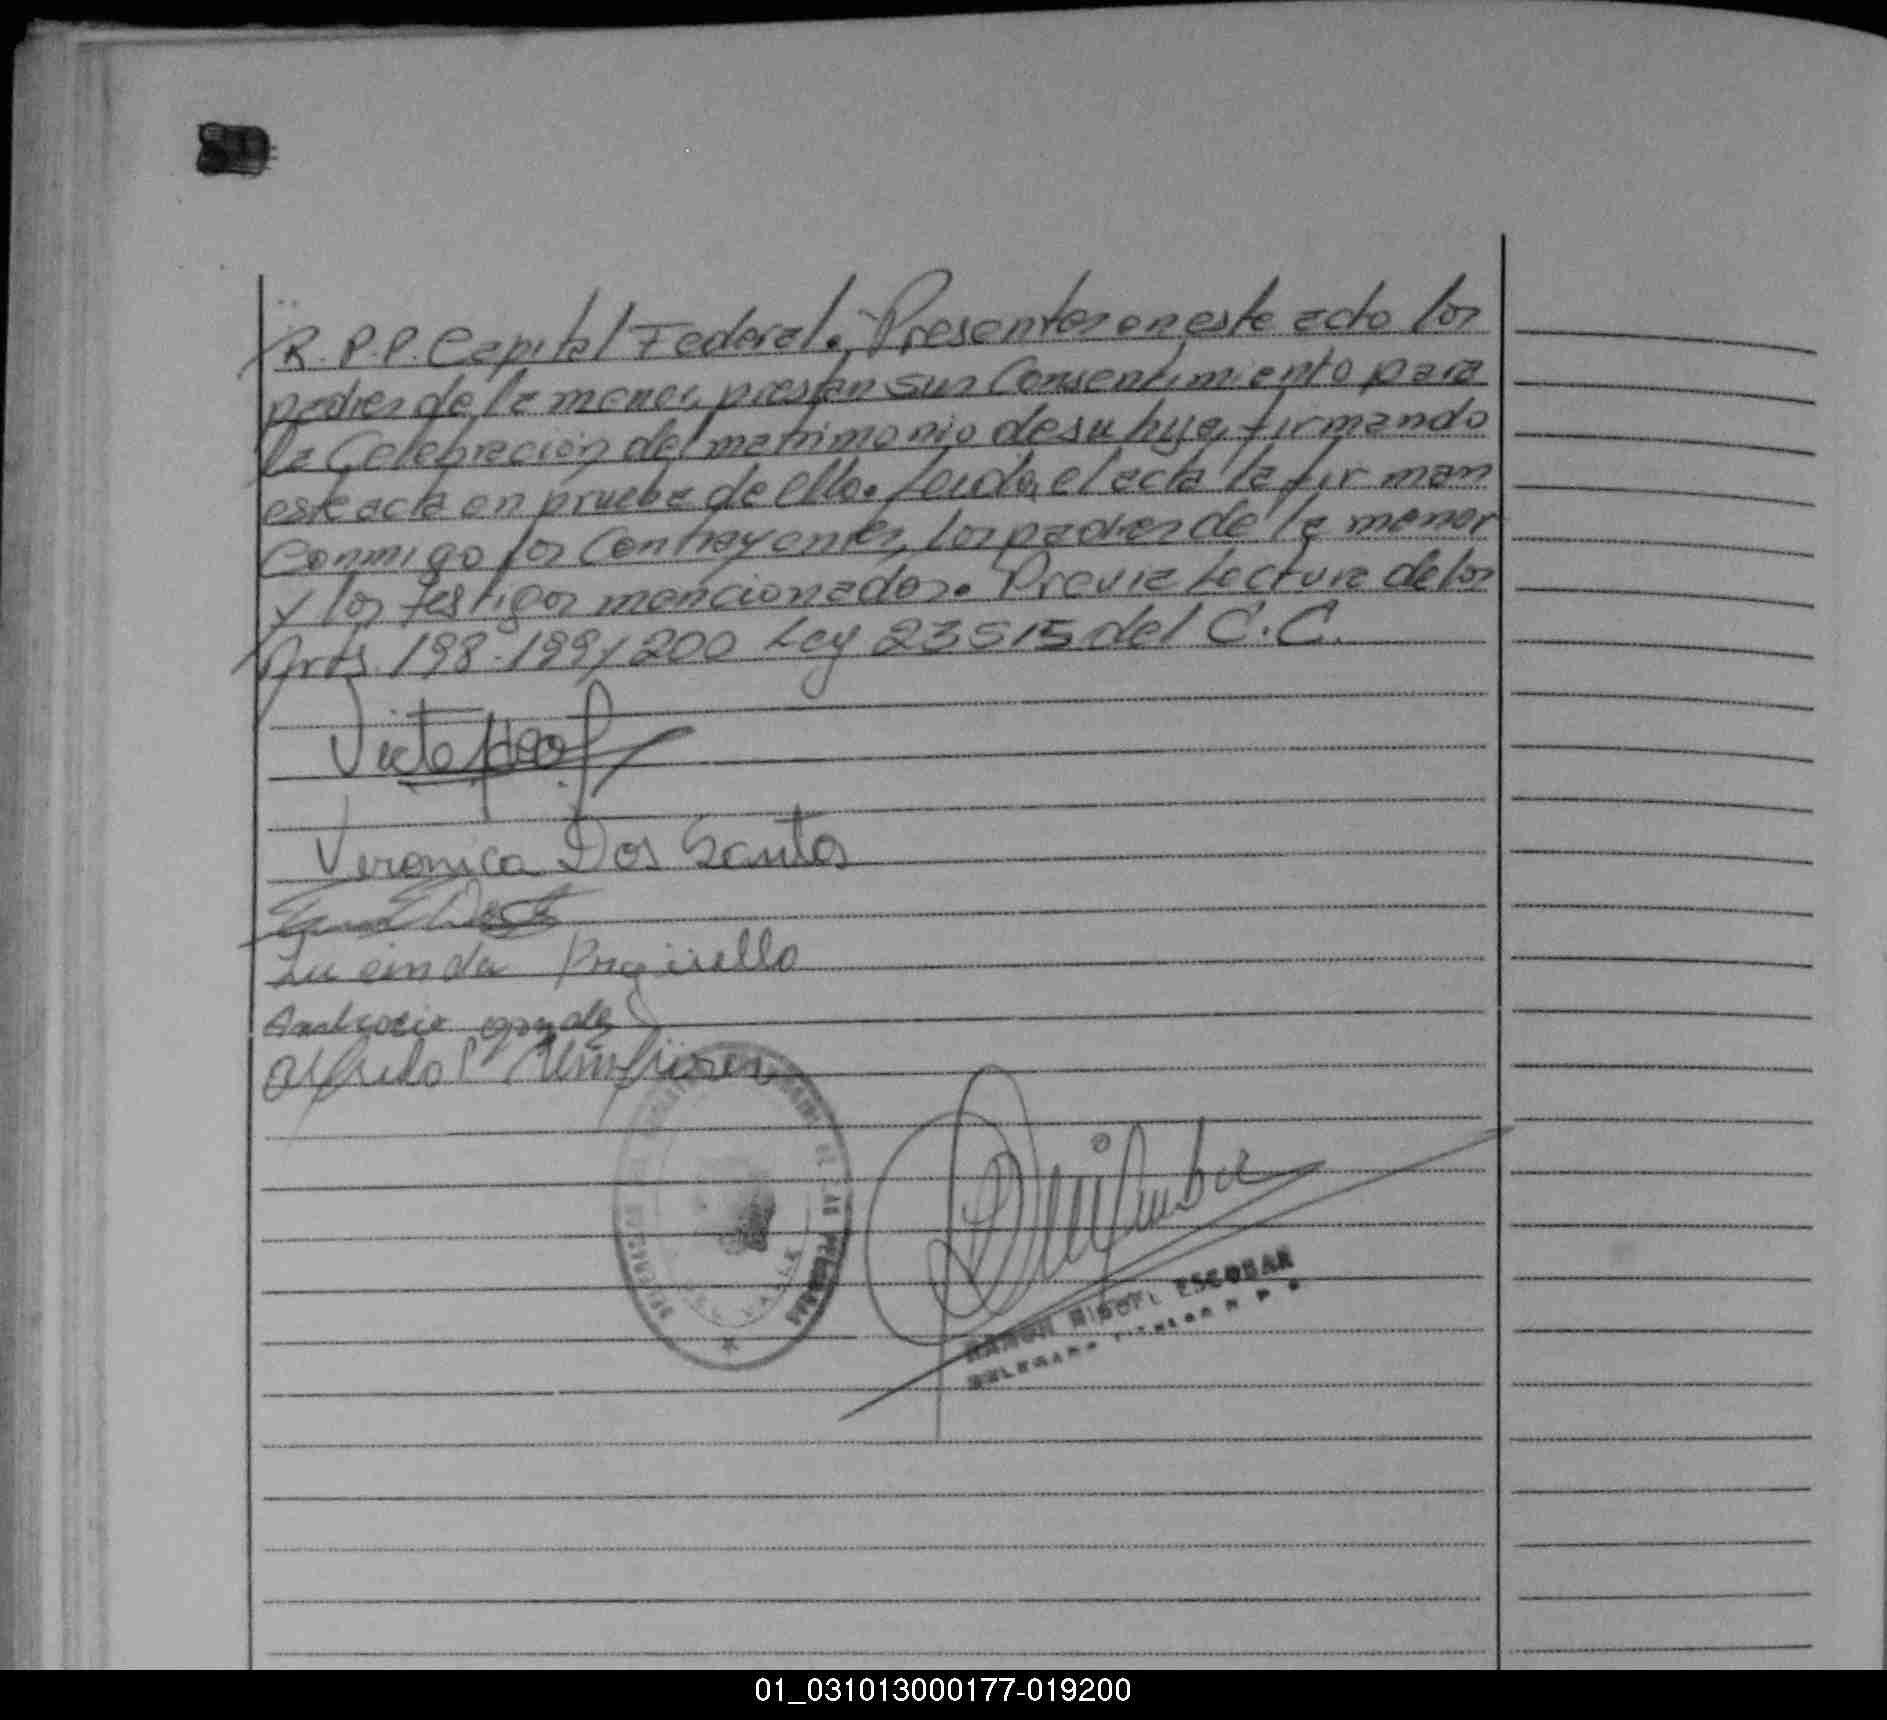 R.P.P. Capital Federal. Presentes en este acto los
padres de la menor, prestan sus Consentimiento para
la Celebración del matrimonio de su hija, firmando
este acta en prueba de ello. Leida, el acta la firman
conmigo los Contrayentes, los padres de la menor
y los testigos mencionados. Previa Lectura de los
Arts. 198-199/200 Ley 23515 del C.C.
Veronica Dos Santos
DE LAS PERSONAS
VALLE
RAMON MIGUEL ESCOBAR
DELEGADO TITULAR R. P. P.
01_031013000177-019200